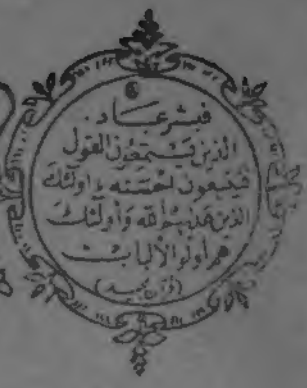 فبشر عباد
الذين يستمعون القول
فيتبعون أحسنه أولئك
الذين هديهم الله وأولئك
هم أولو الألباب
(قرآن مجيد)